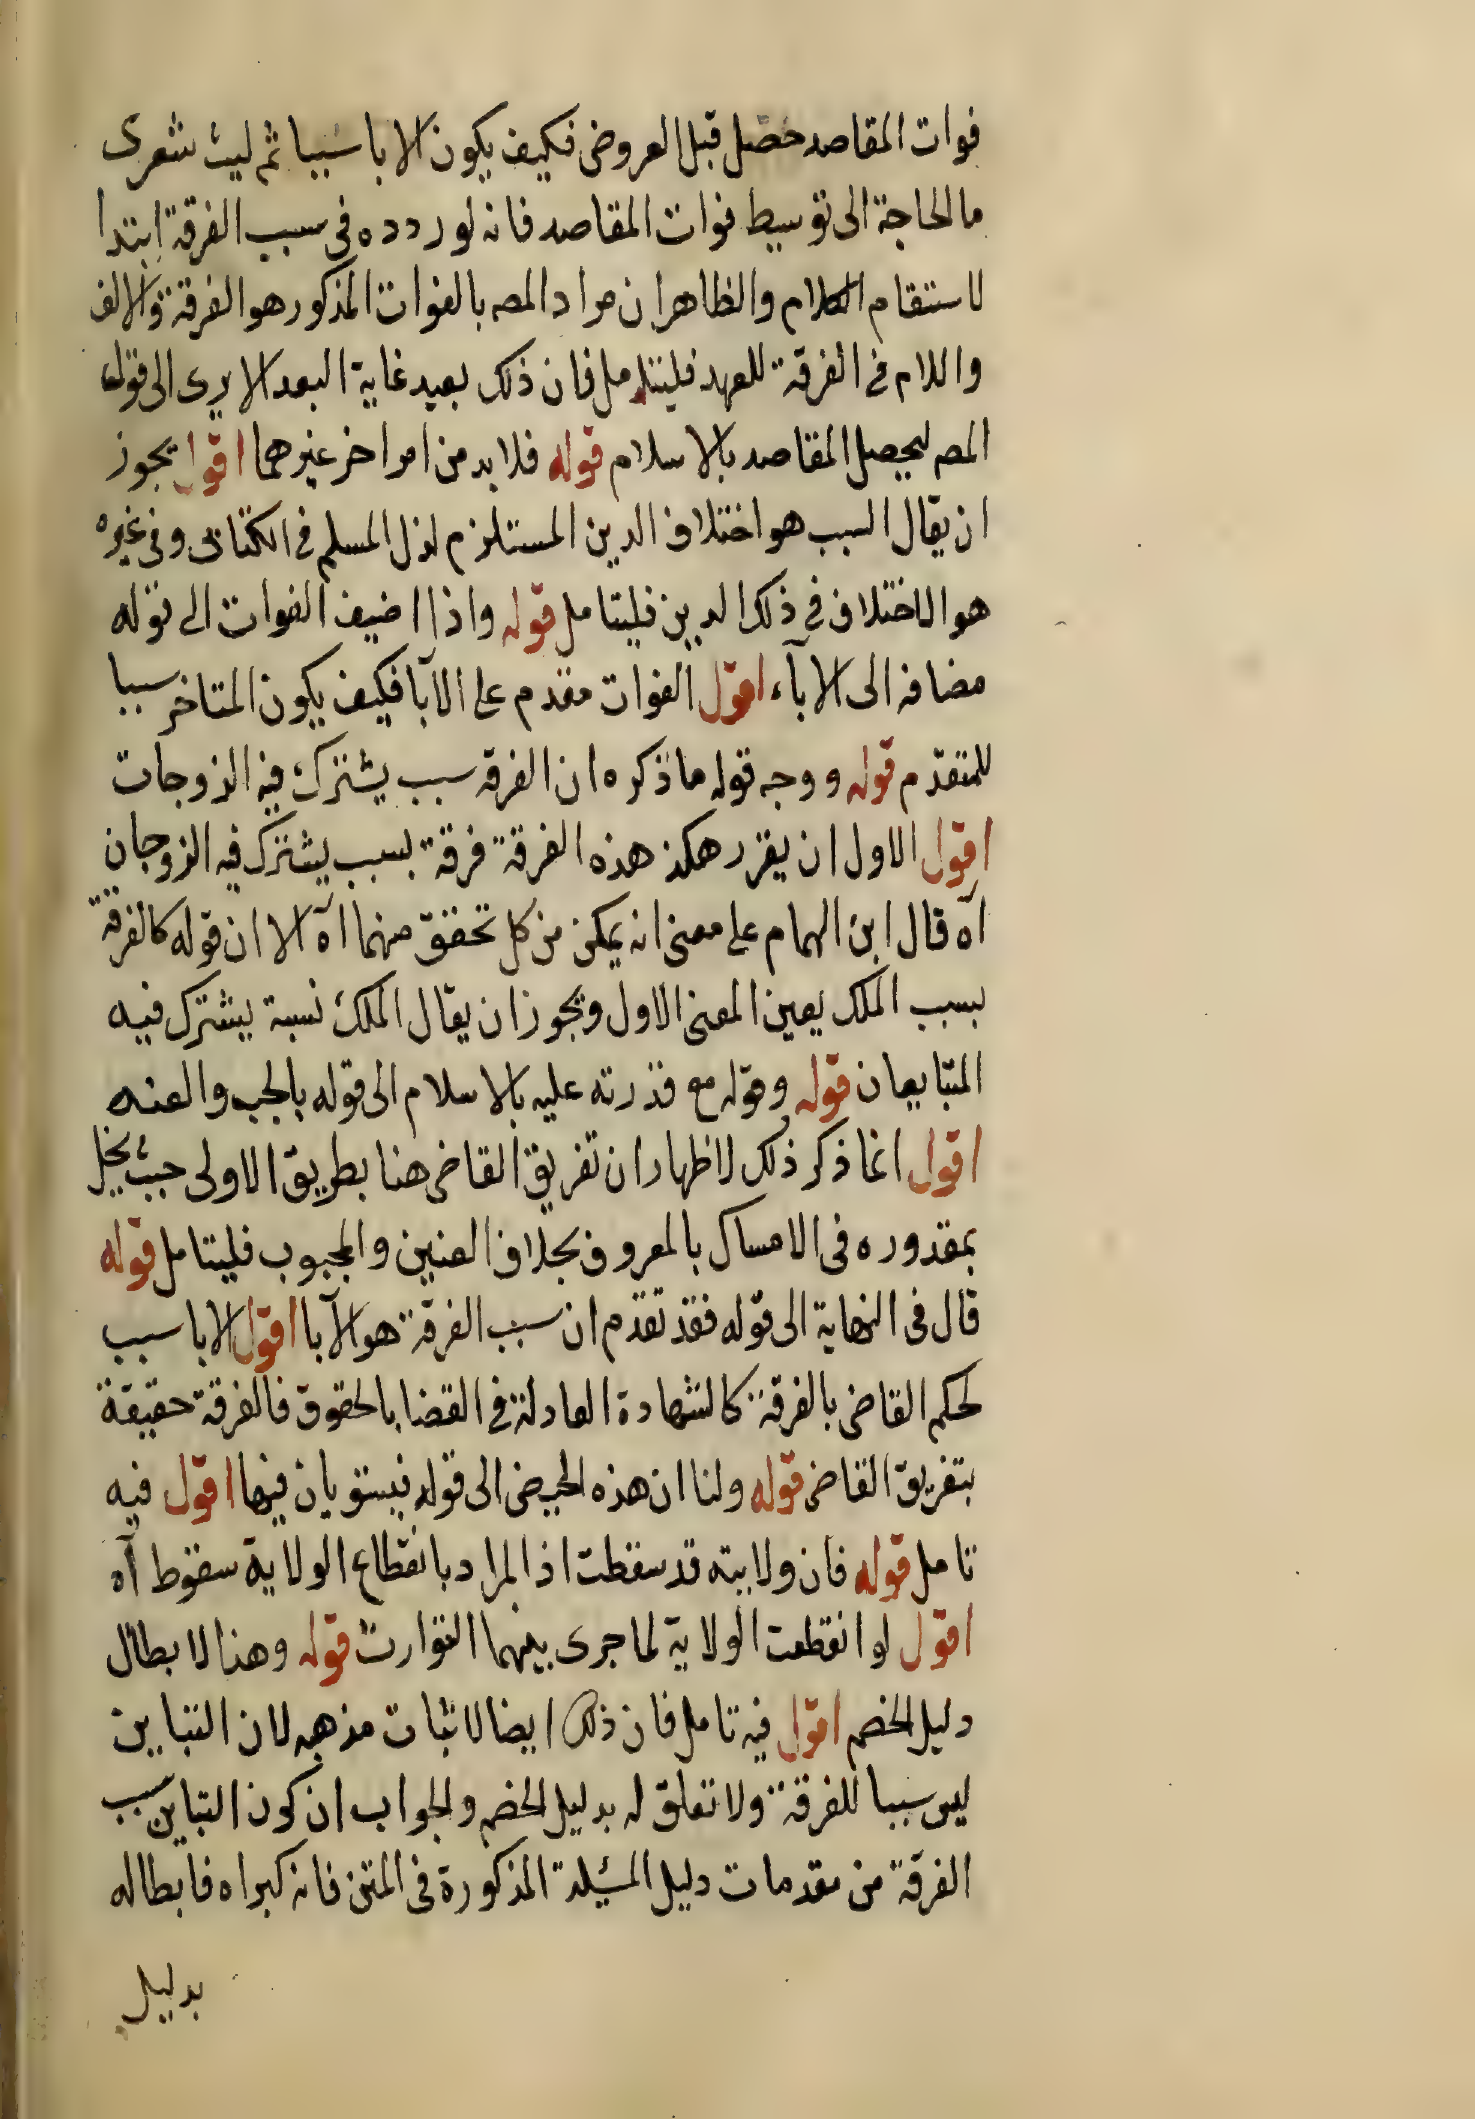 فوات المقاصد حصل قبل العروض فكيف يكون الابا سببا ثم ليت شعرى
ما الحاجة الى توسيط فوات المقاصد فانه لو ردده فى سبب الفرقة ابتدا
لاستقام الكلام والظاهر ان مراد المصـ بالفوات المذكور هو الفرقة والالف
واللام فى الفرقة للعهد فليتامل فان ذلك بعيد غاية البعد الا يرى الى قوله
المصـ ليحصل المقاصد بالاسلام قوله فلا بد من امر اخر غيرهما اقول يجوز
ان يقال السبب هو اختلاف الدين المستلزم لذل المسلم فى الكتابى وفى غيره
هو الاختلاف فى ذلك الدين فليتامل قوله واذا اضيف الفوات الى قوله
مضافه الى الابآء اقول الفوات مقدم على الآبا فكيف يكون المتاخر سببا
للمتقدم قوله ووجه قوله ما ذكره ان الفرقه سبب يشترك فيه الزوجات
اقول الاول ان يقرر هكذ هذه الفرقة فرقة بسبب يشترك فيه الزوجان
آه قال ابن الهمام على معنى انه يمكن من كل تحقق منهما آه الا ان قوله كالفرقة
بسبب الملك يعين المعنى الاول ويجوز ان يقال الملك نسبة يشترك فيه
المتبايعان قوله وقوله مع قدرته عليه بالاسلام الى قوله بالجب والعنه
اقول انما ذكر ذلك لاظهار ان تفريق القاضى هنا بطريق الاولى حيث يخل
بمقدوره فى الامساك بالمعروف بخلاف العنين والمجبوب فليتامل قوله
قال فى النهاية الى قوله فقد تقدم ان سبب الفرقة هو الآبا اقول الابا سبب
لحكم القاضى بالفرقة كالشهادة العادلة فى القضا بالحقوق فالفرقة حقيقة
بتفريق القاضى قوله ولنا ان هذه الحيض الى قوله فيستويان فيها اقول فيه
تامل قوله فان ولايته قد سقطت اذ المراد بانقطاع الولاية سقوط آه
اقول لو انقطعت الولاية لما جرى بينهما التوارث قوله وهذا لابطال
دليل الخصم اقول فيه تامل فان ذلك ايضا لاثبات مذهبه لان التباين
ليس سببا للفرقة ولا تعلق له بدليل الخصم والجواب ان كون التباين سبب
الفرقة من مقدمات دليل المسئلة المذكورة فى المتن فانه كبراه فابطاله
بدليل